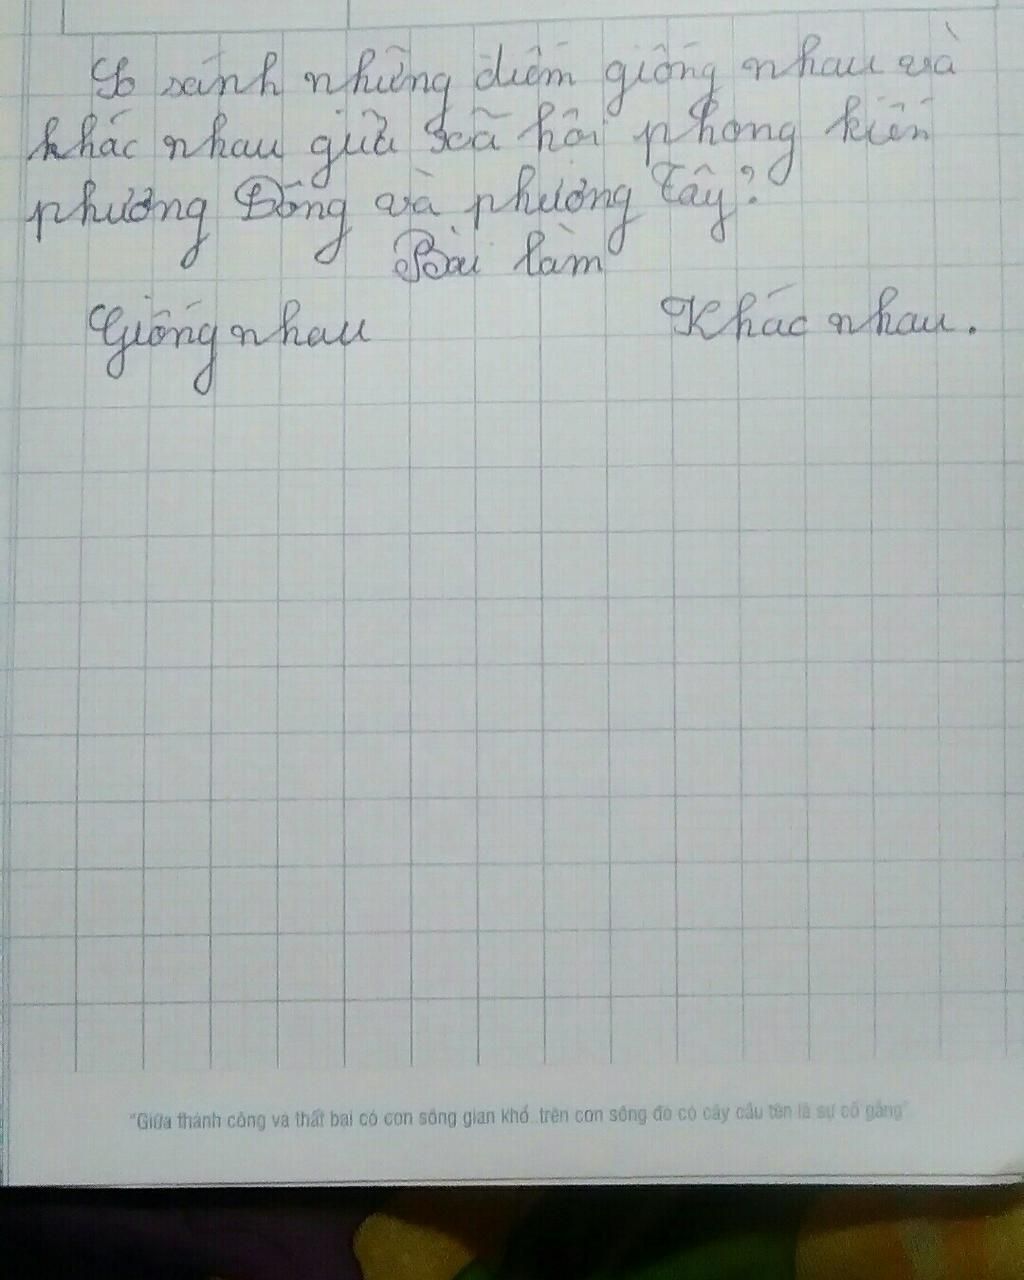 So sánh những điểm giống nhau và
khác nhau giữa xã hội phong kiến
phương Đông và phương Tây?
Bài làm
Giống nhau Khác nhau.
"Giữa thành công và thất bại có con sông gian khổ, trên con sông đó có cây cầu tên là sự cố gắng"